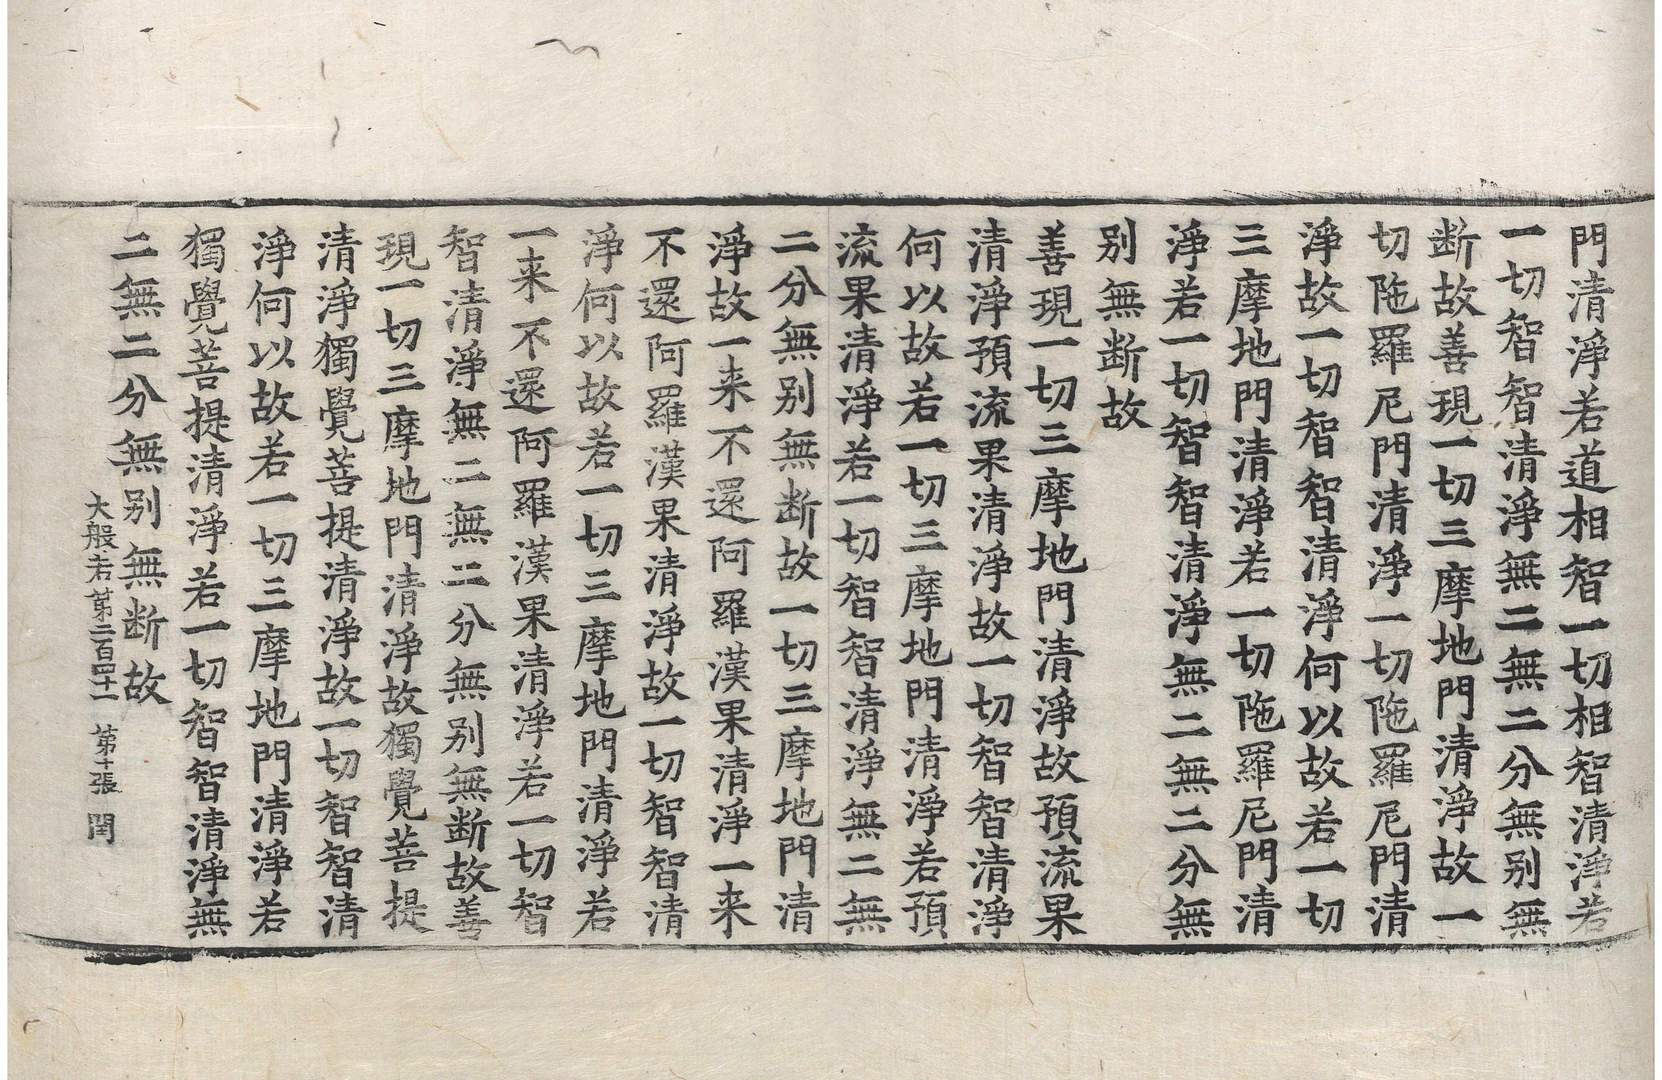 門清淨若道相智一切相智清淨若
一切智智清淨無二無二分無別無
断故善現一切三摩地門清淨故一
切陁羅尼門清淨一切陁羅尼門清
淨故一切智智清淨何以故若一切
三摩地門清淨若一切陁羅尼門清
淨若一切智智清淨無二無二分無
別無断故
善現一切三摩地門清淨故預流果
清淨預流果清淨故一切智智清淨
何以故若一切三摩地門清淨若預
流果清淨若一切智智清淨無二無
二分無別無断故一切三摩地門清
淨故一来不還阿羅漢果清淨一来
不還阿羅漢果清淨故一切智智清
淨何以故若一切三摩地門清淨若
一来不還阿羅漢果清淨若一切智
智清淨無二無二分無別無断故善
現一切三摩地門清淨故獨覺菩提
清淨獨覺菩提清淨故一切智智清
淨何以故若一切三摩地門清淨若
獨覺菩提清淨若一切智智清淨無
二無二分無別無断故
大般若第二百四十一 第十張 閏